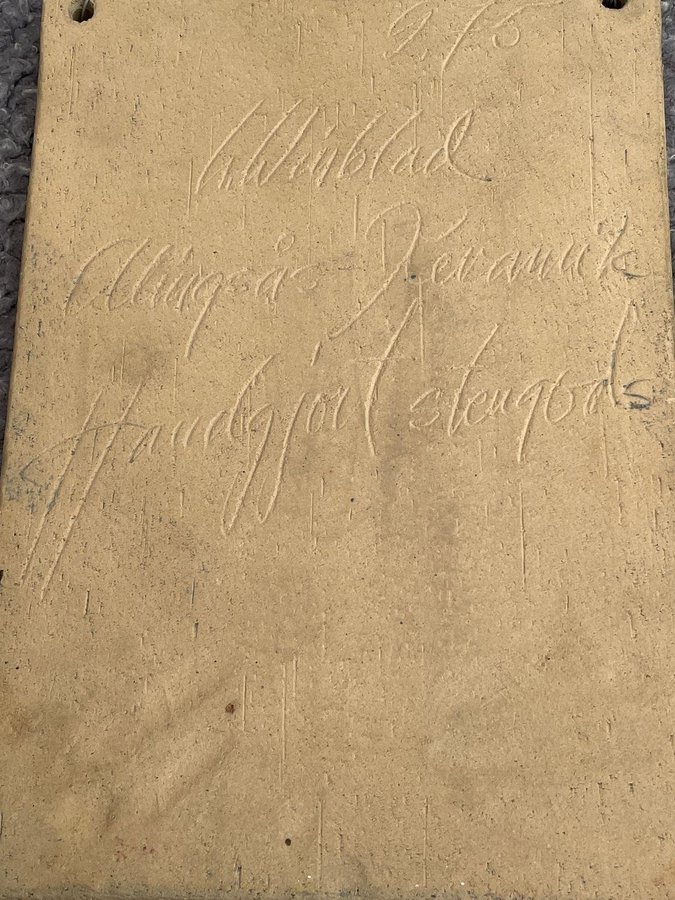 Winblad
Alingsås Keramik
Handgjort stengods